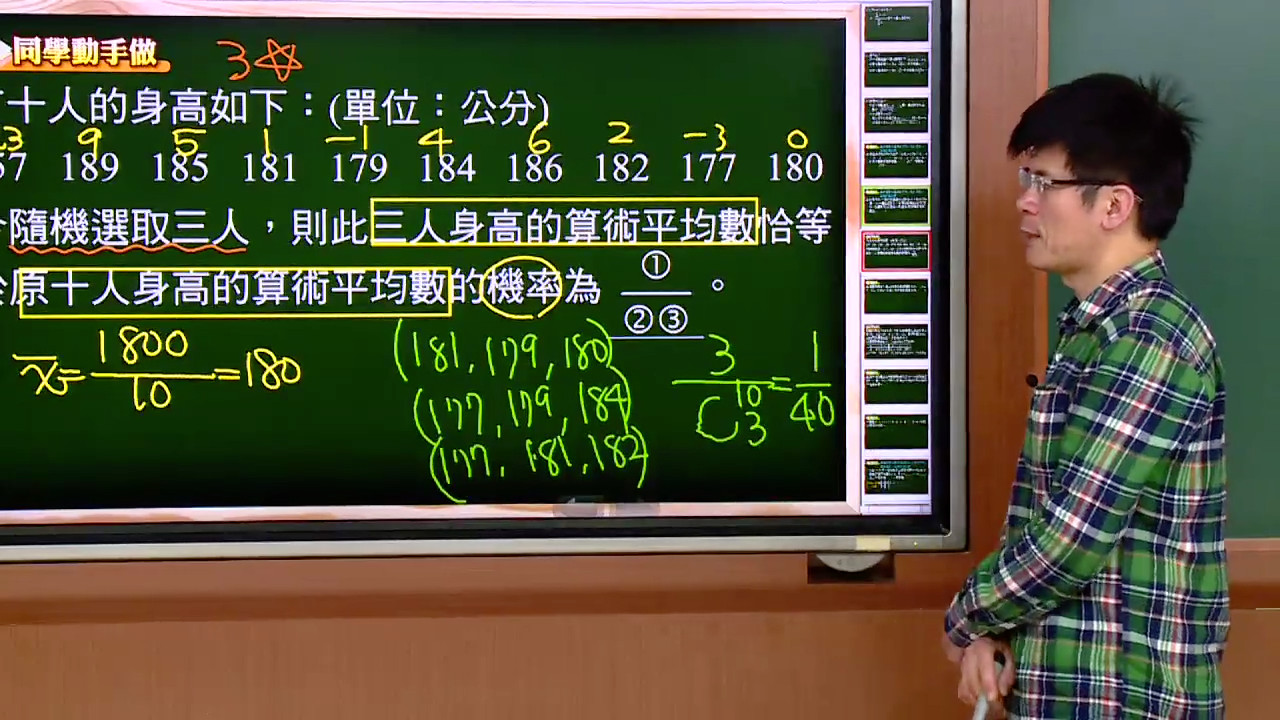 同學動手做 3☆
十人的身高如下：(單位：公分)
3 9 5 1 -1 4 6 2 -3 0
57 189 185 181 179 184 186 182 177 180
隨機選取三人，則此三人身高的算術平均數恰等
於原十人身高的算術平均數的機率為 ①/②③ 。
x̄ = 1800/10 = 180
(181, 179, 180)
(177, 179, 184)
(177, 181, 182)
3/C¹⁰₃ = 1/40